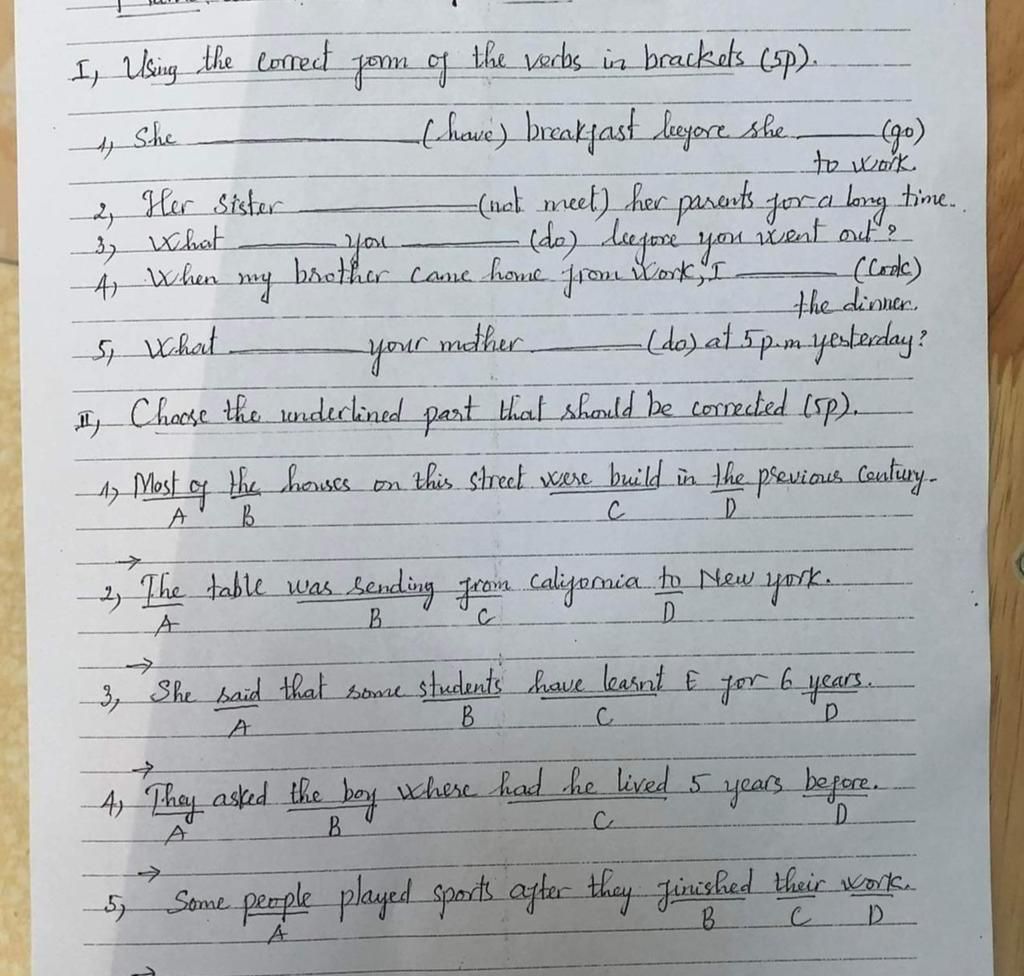 I, Using the correct form of the verbs in brackets (5p).
1, She ________ (have) breakfast before she ____ (go)
to work.
2, Her sister ________ (not meet) her parents for a long time.
3, What ____ you ____ (do) before you went out?
4, When my brother came home from work, I ____ (cook)
the dinner.
5, What ____ your mother ____ (do) at 5 p.m yesterday?
II, Choose the underlined part that should be corrected (5p).
1, Most of the houses on this street were build in the previous century.
A B C D
→
2, The table was sending from California to New york.
A B C D
→
3, She said that some students have learnt E for 6 years.
A B C D
→
4, They asked the boy where had he lived 5 years before.
A B C D
→
5, Some people played sports after they finished their work.
A B C D
→